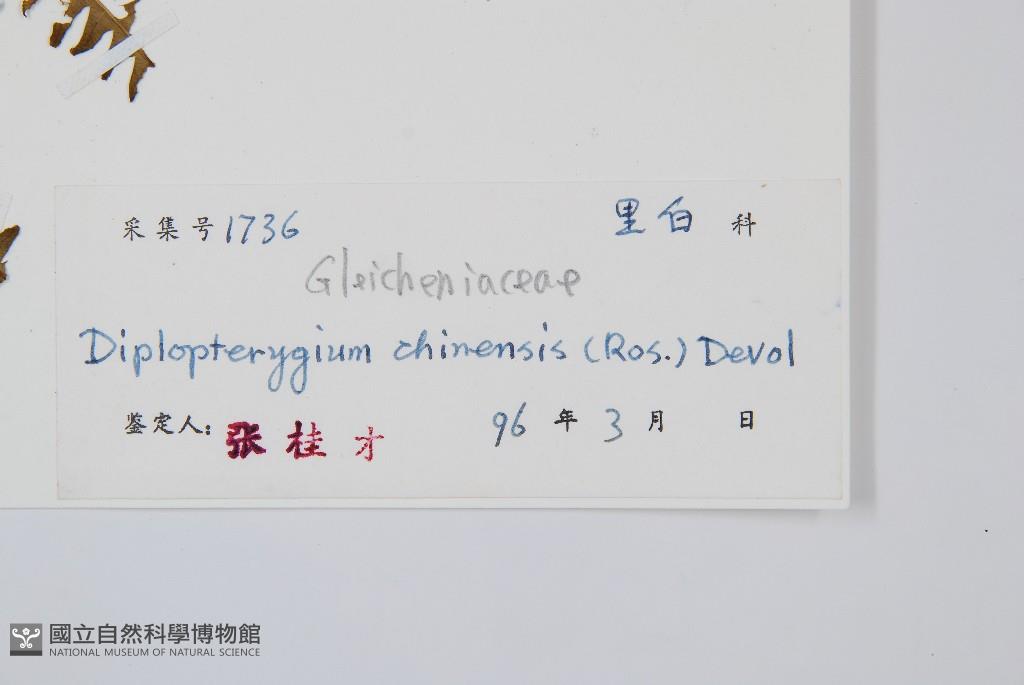 采集号 1736 里白 科
Gleicheniaceae
Diplopterygium chinensis (Ros.) Devol
鉴定人: 张桂才 96 年 3 月 日
國立自然科學博物館
NATIONAL MUSEUM OF NATURAL SCIENCE